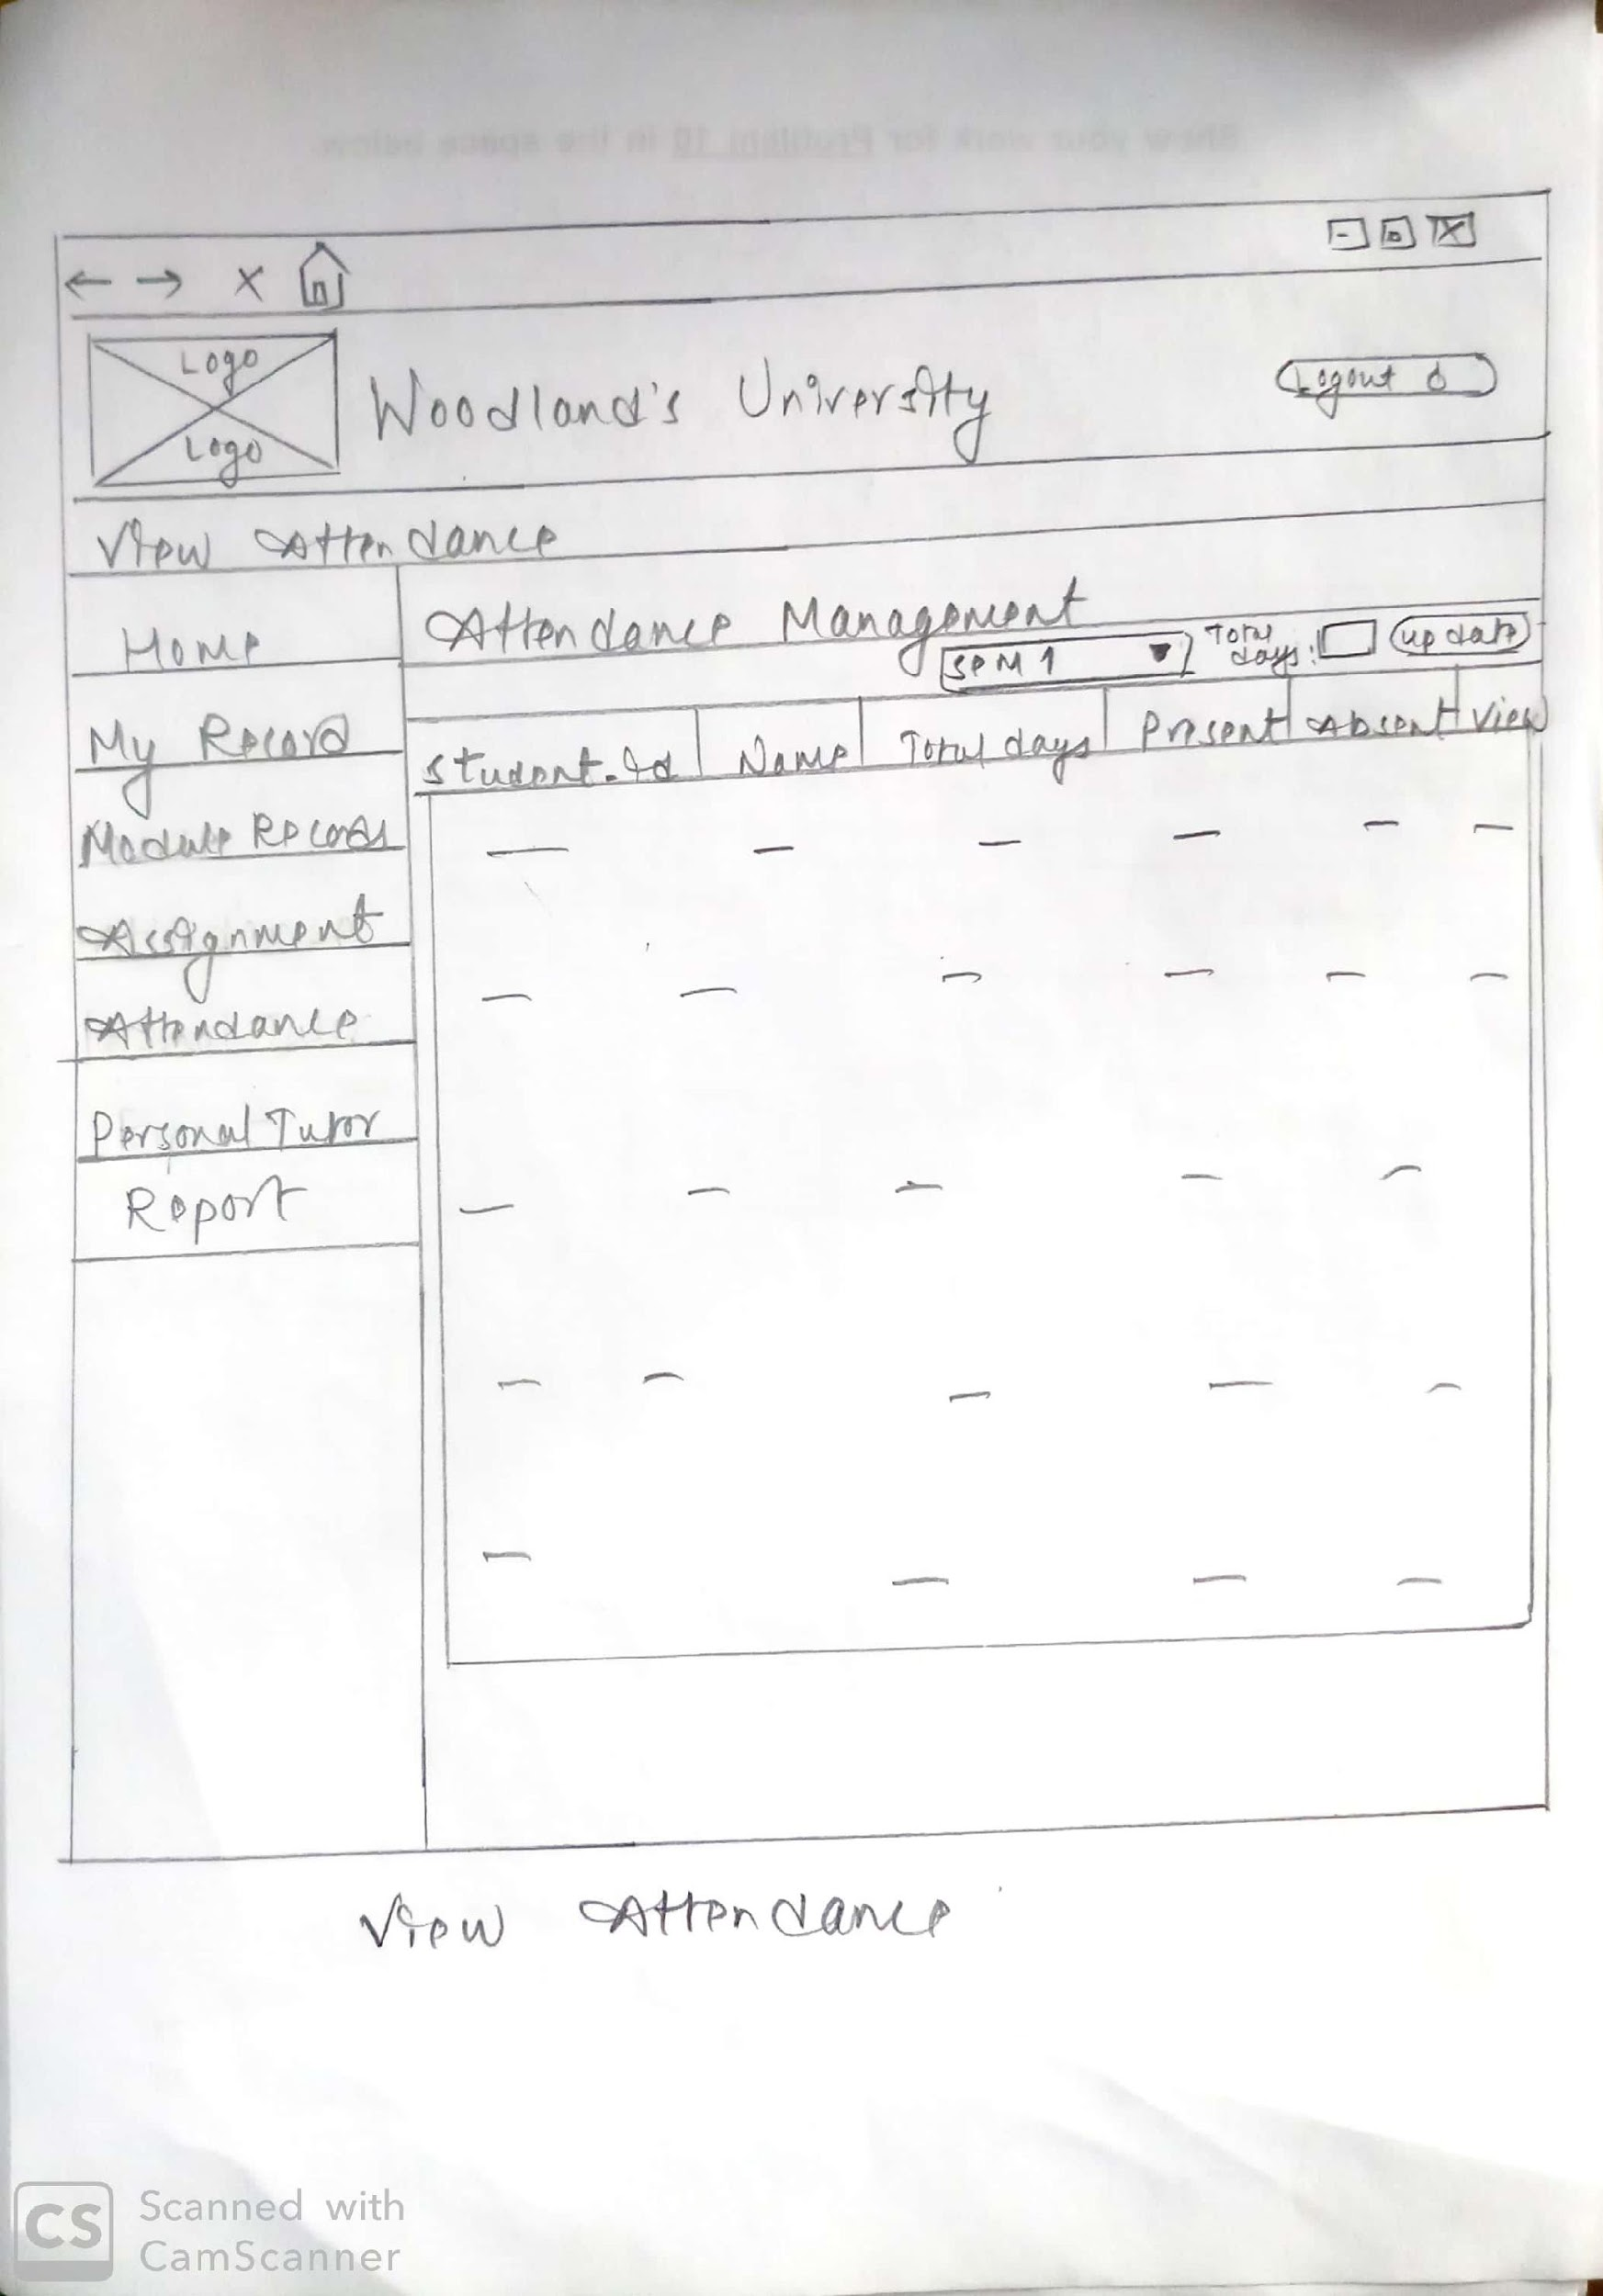 Show your work for Problem 10 in the space below.
Logo
Logo
Woodland's University
Logout
View Attendance
Home
My Record
Module Records
Assignment
Attendance
Personal Tutor
Report
Attendance Management
Sem 1
Total days:
update
Student-Id Name Total days Present Absent View
View Attendance
CS
Scanned with
CamScanner